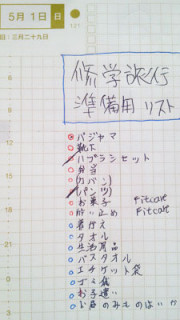 5月1日 日
日：三月二十九日
121
修学旅行
準備用リスト
6
パジャマ
靴下
ハブラシセット
弁当
(カバン)
9
(パンツ)
お菓子
酔い止め
着がえ
タオル
12
生活用品
バスタオル
エチケット袋
ゴミ袋
お小遣い